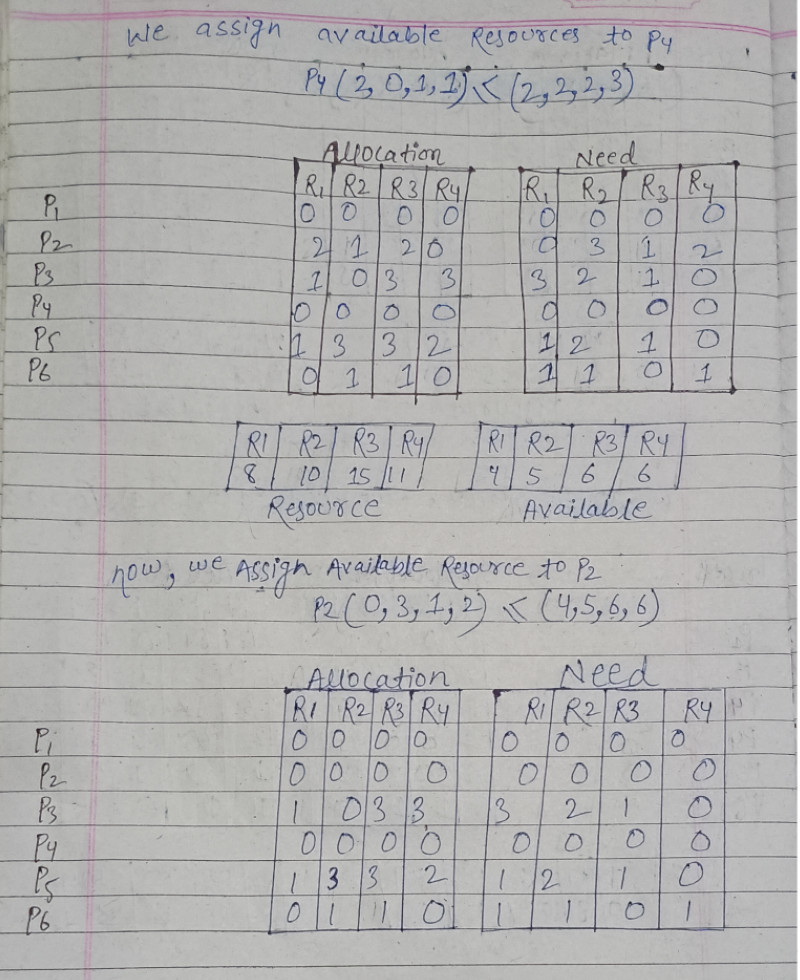 We assign available Resources to P4
P4 (2, 0, 1, 1) ≤ (2, 2, 2, 3)
Allocation Need
R1 R2 R3 R4 R1 R2 R3 R4
P1 0 0 0 0 0 0 0 0
P2 2 1 2 0 0 3 1 2
P3 1 0 3 3 3 2 1 0
P4 0 0 0 0 0 0 0 0
P5 1 3 3 2 1 2 1 0
P6 0 1 1 0 1 1 0 1
R1 R2 R3 R4 R1 R2 R3 R4
8 10 15 11 4 5 6 6
Resource Available
now, we Assign Available Resource to P2
P2 (0, 3, 1, 2) ≤ (4, 5, 6, 6)
Allocation Need
R1 R2 R3 R4 R1 R2 R3 R4
P1 0 0 0 0 0 0 0 0
P2 0 0 0 0 0 0 0 0
P3 1 0 3 3 3 2 1 0
P4 0 0 0 0 0 0 0 0
P5 1 3 3 2 1 2 1 0
P6 0 1 1 0 1 1 0 1